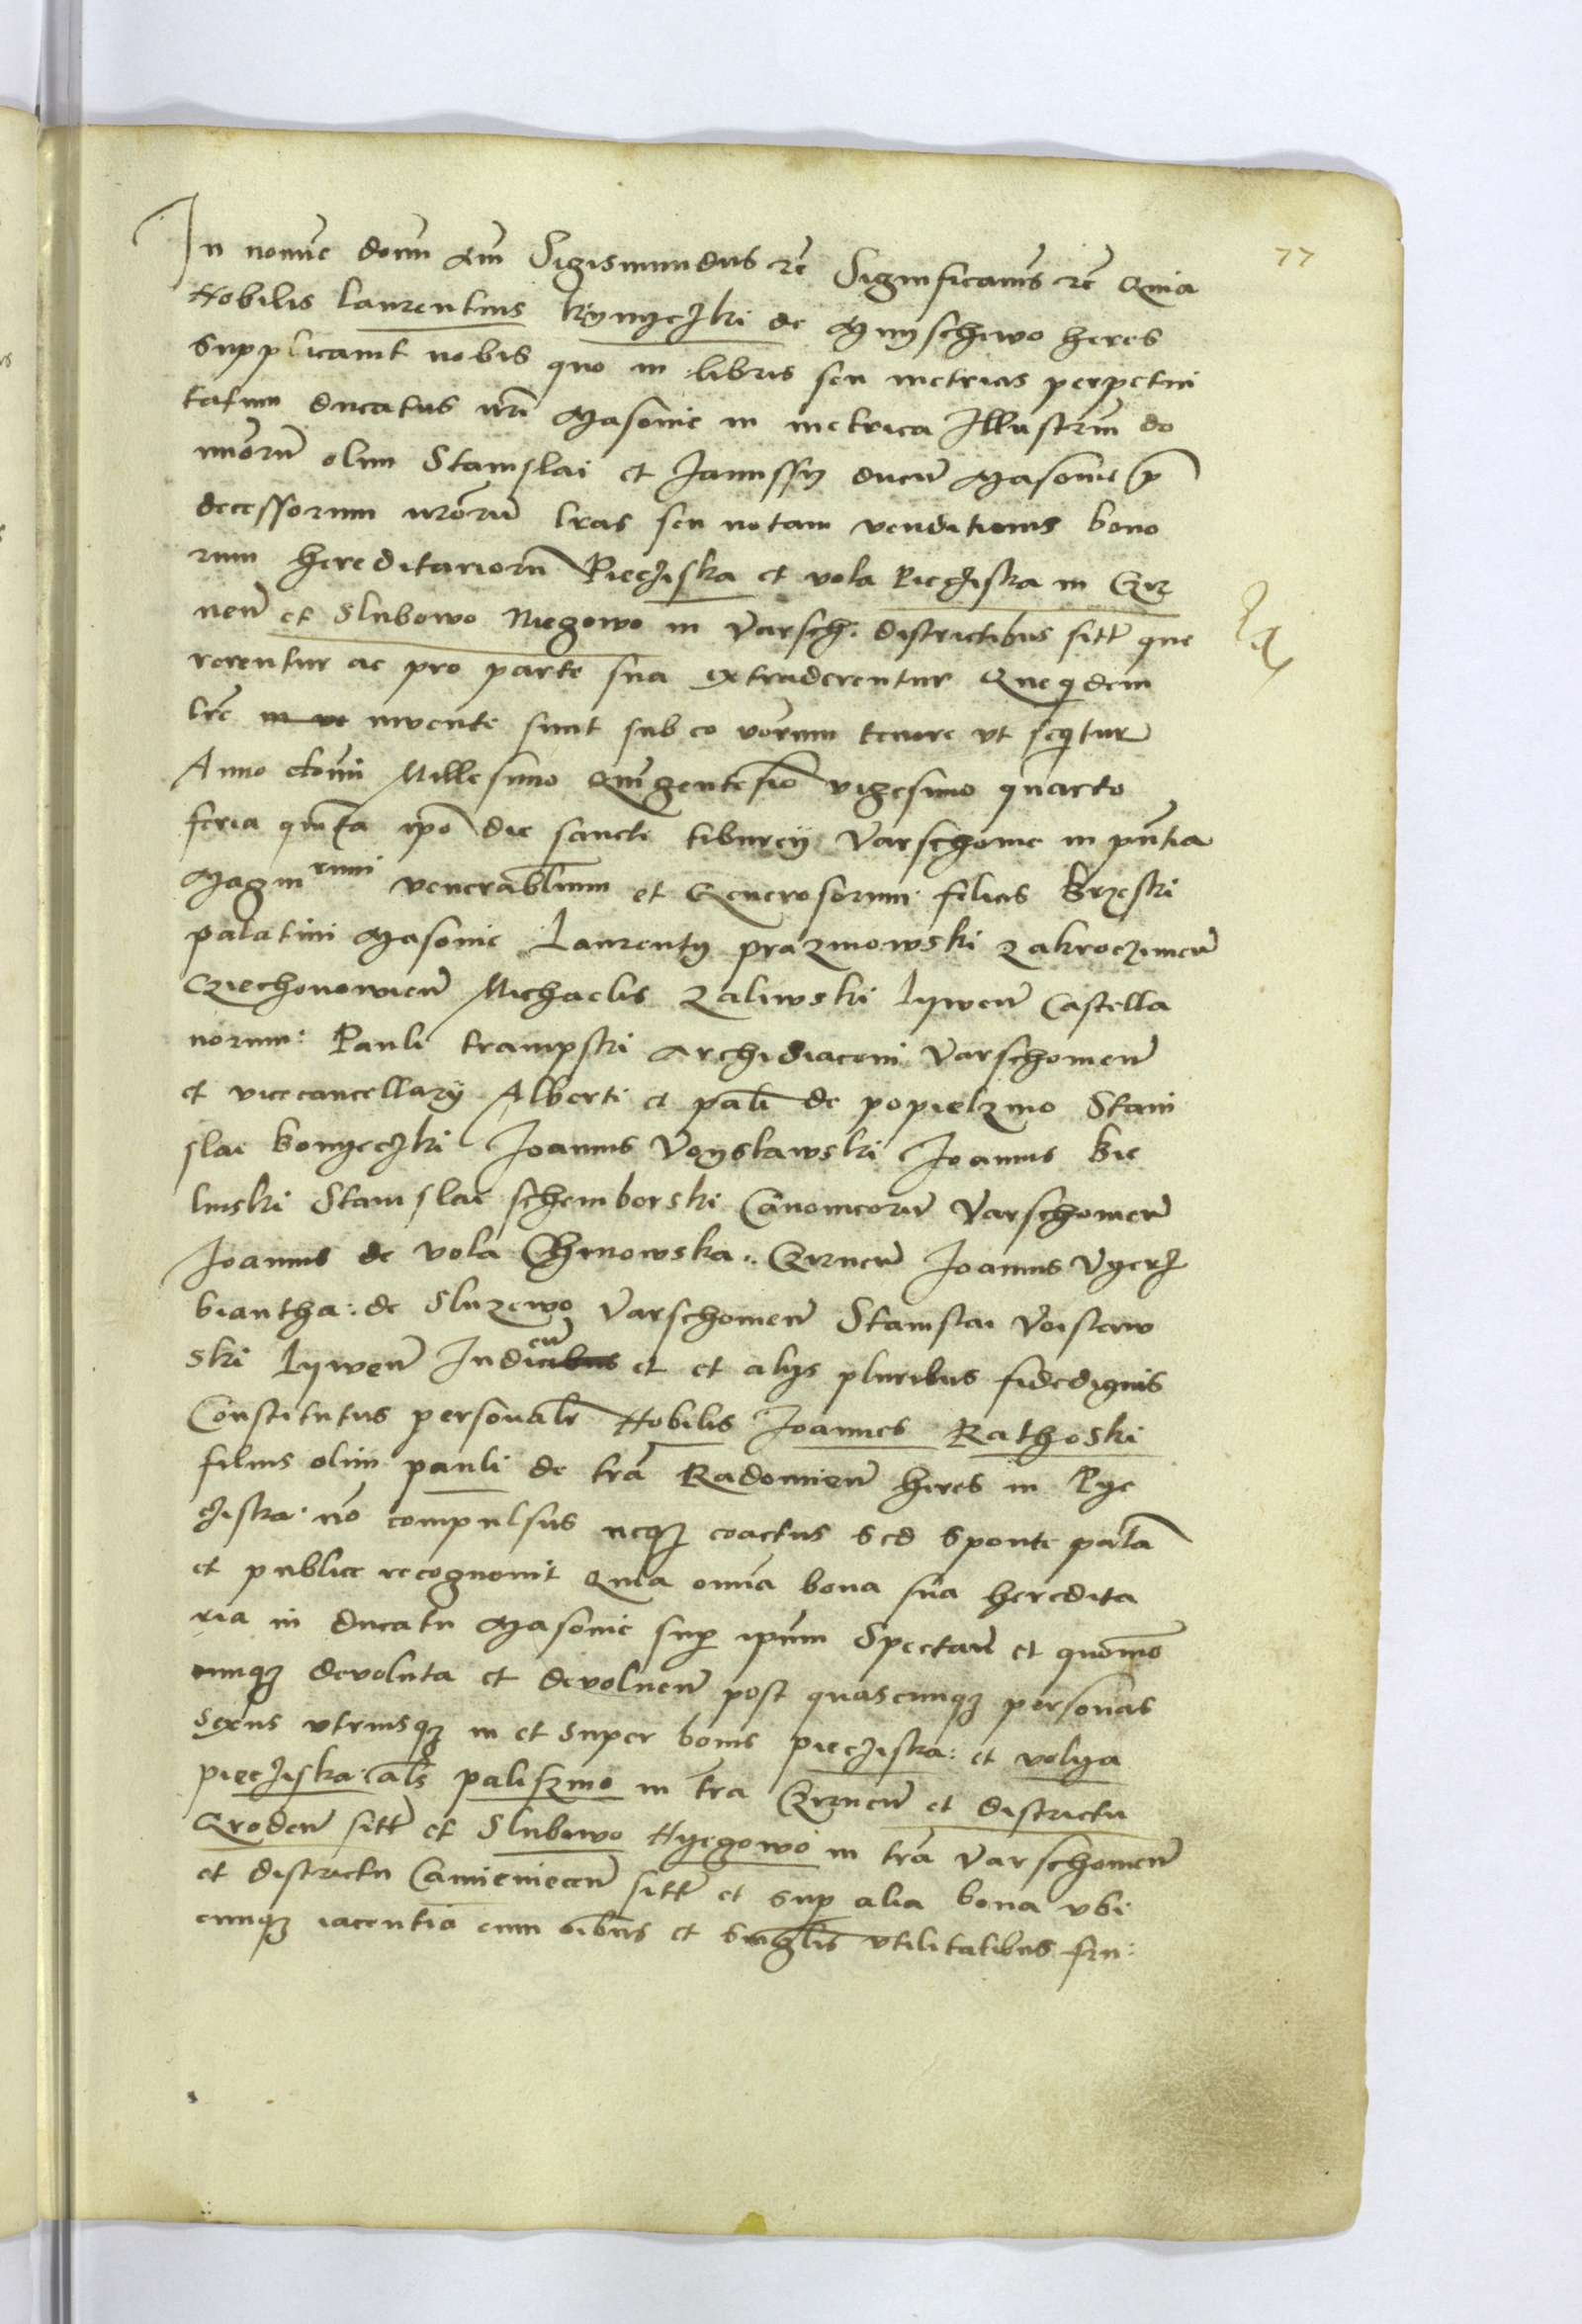 77
In nomīe domī Am̄ Sigismundus rc̄ Significam̄s rc̄ Quia
Nobilis Laurentius Kӱnyeczki de Mnyschewo heres
supplicauit nobis quo in libris seu metricas perpetui
tatum ducatus nrī Masouie in metrica Illustriū do
minorū olim Stanislai et Janussij ducū Masouie p̄
decessorum nrōrū lrās seu notam venditionis bono
rum hereditariorū Piecziska et vola Pieczista in Czr
nen̄ et Slubowo Niegowo in Varsch. districtibus sitt̄ que
rerentur ac pro parte sua extruderentur Queq̄dem
lrē inuente sunt sub eo vērum tenore vt seq̄tur
Anno domī Millesimo Quīgentesīo vigesimo quarto
feria quīta ipō die sancti tiburcij Varschouie in pn̄tia
Magnirum venerabilium et Generosorum felicis Brzeski
palatini Masouie Laurentij prazmowski zakroczimen̄
Cziechonowien̄ Michaelis zaliwski Lywen̄ Castella
norum: Pauli trampski Archidiaconi Varschouien̄
et vicecancellarij Alberti et palī de popielzino Stani
slai konyeczki Joannis Voyslawski Joannis Bie
linski Stanislai schemborski Canonicorū Varschouien̄
Joannis de vola Chinowska: Czrnen̄ Joannis Vyerz
biantha: de Sluzewo Varschouien̄ Stanislai Voislaw
ski Lywen̄ Iudicū et et alijs pluribus fidedignis
Constitutus personalr̄ Nobilis Joannes Rathoski
filius olim pauli de trā Radomien̄ heres in Pye
cziska: nō compulsus neqz coactus sed sponte palā
et publice recognouit Quia om̄ia bona sua heredita
ria in ducatu Masouie sup̄ ipsum Spectan̄ et quomō
cunqz deuoluta et deuoluen̄ post quascunqz personas
sexus vtriusqz in et super bonis pieczista: et volya
pieczyska: als̄ paliszino in tra Czrnen̄ et districtu
Groden̄ sitt̄ et Slubowo Nyegowo in trā Varschouien̄
et districtu Camieniecen̄ sitt̄ et sup̄ alia bona vbi
cunqz iacentia cum oībus et singlīs vtilitatibus fru: